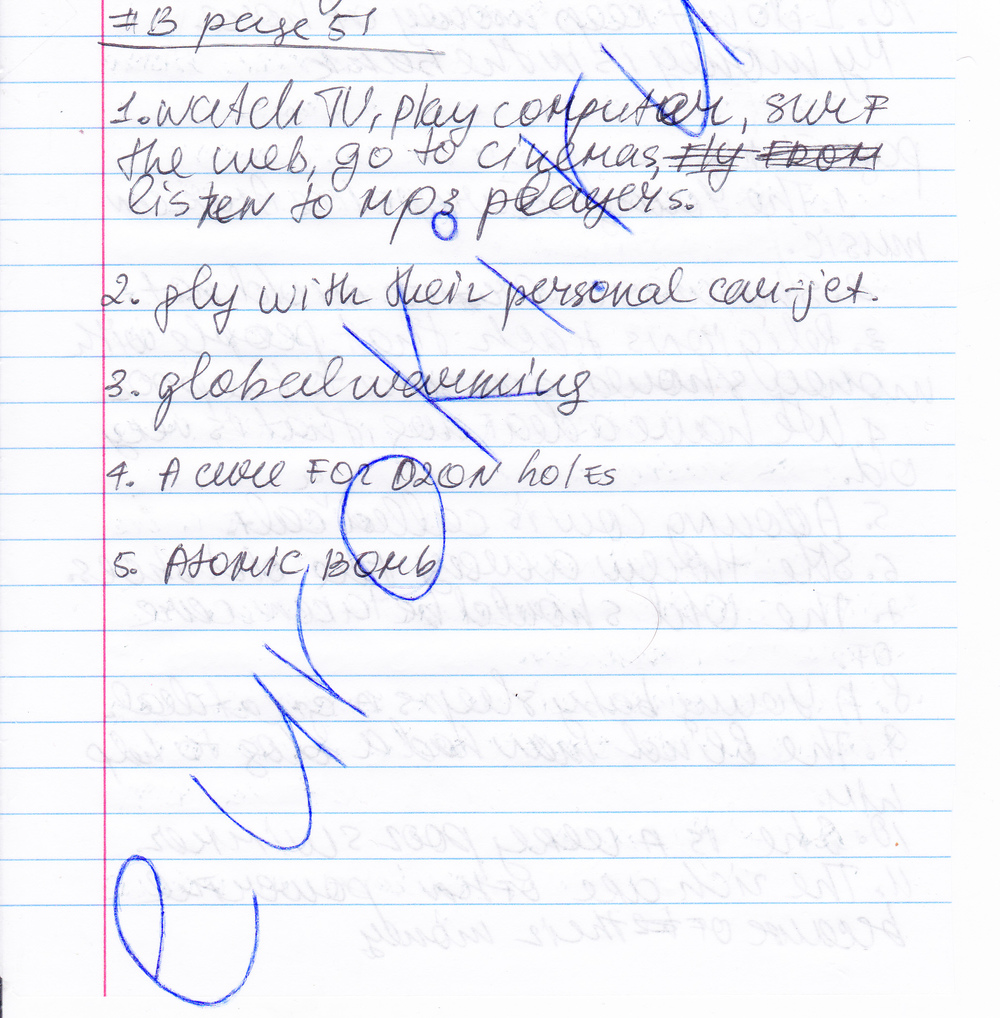 #B page 51
1. watch TV, play computer, surf
the web, go to cinemas, fly from
listen to mp3 players.
2. fly with their personal car-jet.
3. global warming
4. A cure FOR OZON holes
5. ATOMIC BOMb
euroki